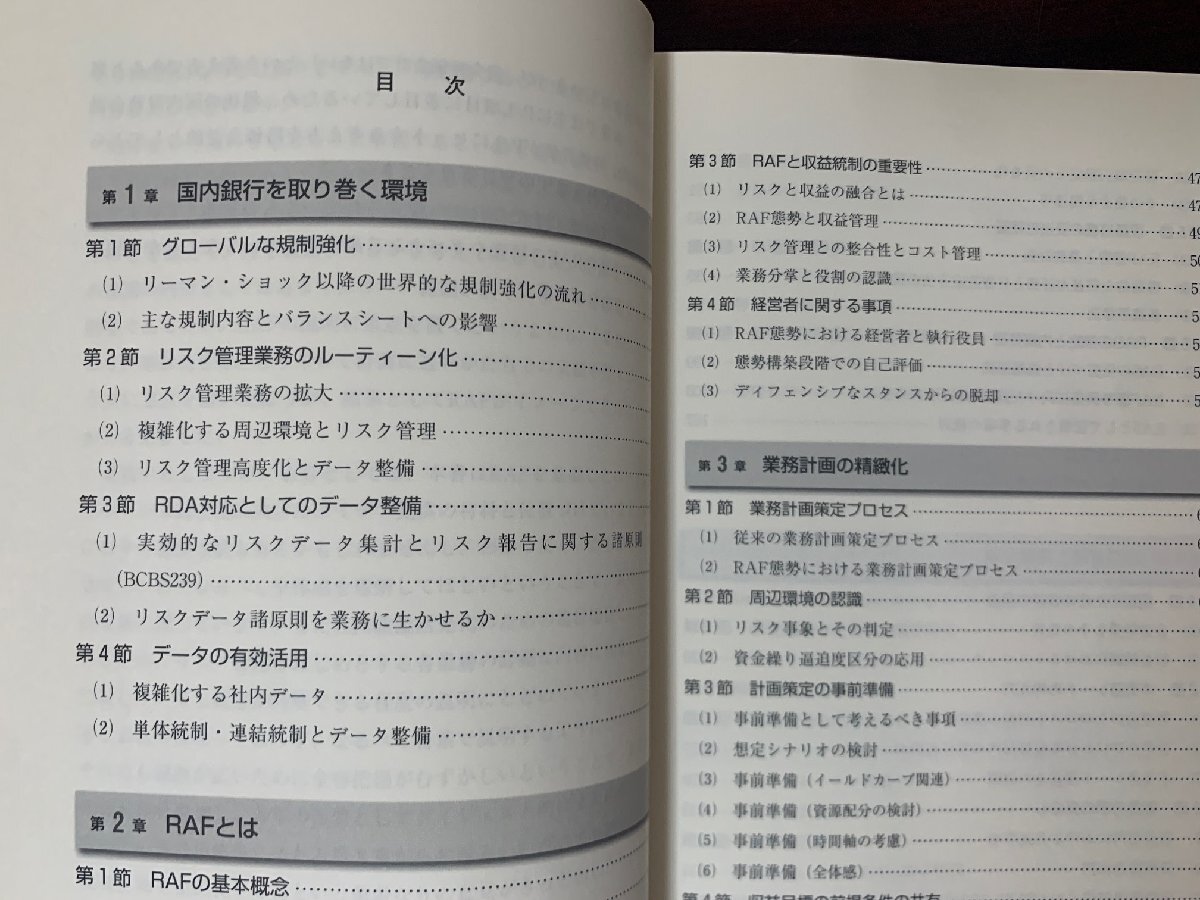 目 次
第1章 国内銀行を取り巻く環境
第1節 グローバルな規制強化
(1) リーマン・ショック以降の世界的な規制強化の流れ
(2) 主な規制内容とバランスシートへの影響
第2節 リスク管理業務のルーティーン化
(1) リスク管理業務の拡大
(2) 複雑化する周辺環境とリスク管理
(3) リスク管理高度化とデータ整備
第3節 RDA対応としてのデータ整備
(1) 実効的なリスクデータ集計とリスク報告に関する諸原則
(BCBS239)
(2) リスクデータ諸原則を業務に生かせるか
第4節 データの有効活用
(1) 複雑化する社内データ
(2) 単体統制・連結統制とデータ整備
第2章 RAFとは
第1節 RAFの基本概念
第3節 RAFと収益統制の重要性 47
(1) リスクと収益の融合とは 47
(2) RAF態勢と収益管理 49
(3) リスク管理との整合性とコスト管理 50
(4) 業務分掌と役割の認識 5
第4節 経営者に関する事項 5
(1) RAF態勢における経営者と執行役員 5
(2) 態勢構築段階での自己評価 5
(3) ディフェンシブなスタンスからの脱却 5
第3章 業務計画の精緻化
第1節 業務計画策定プロセス
(1) 従来の業務計画策定プロセス
(2) RAF態勢における業務計画策定プロセス
第2節 周辺環境の認識
(1) リスク事象とその判定
(2) 資金繰り逼迫度区分の応用
第3節 計画策定の事前準備
(1) 事前準備として考えるべき事項
(2) 想定シナリオの検討
(3) 事前準備(イールドカーブ関連)
(4) 事前準備(資源配分の検討)
(5) 事前準備(時間軸の考慮)
(6) 事前準備(全体感)
第4節 収益目標の前提条件の共有